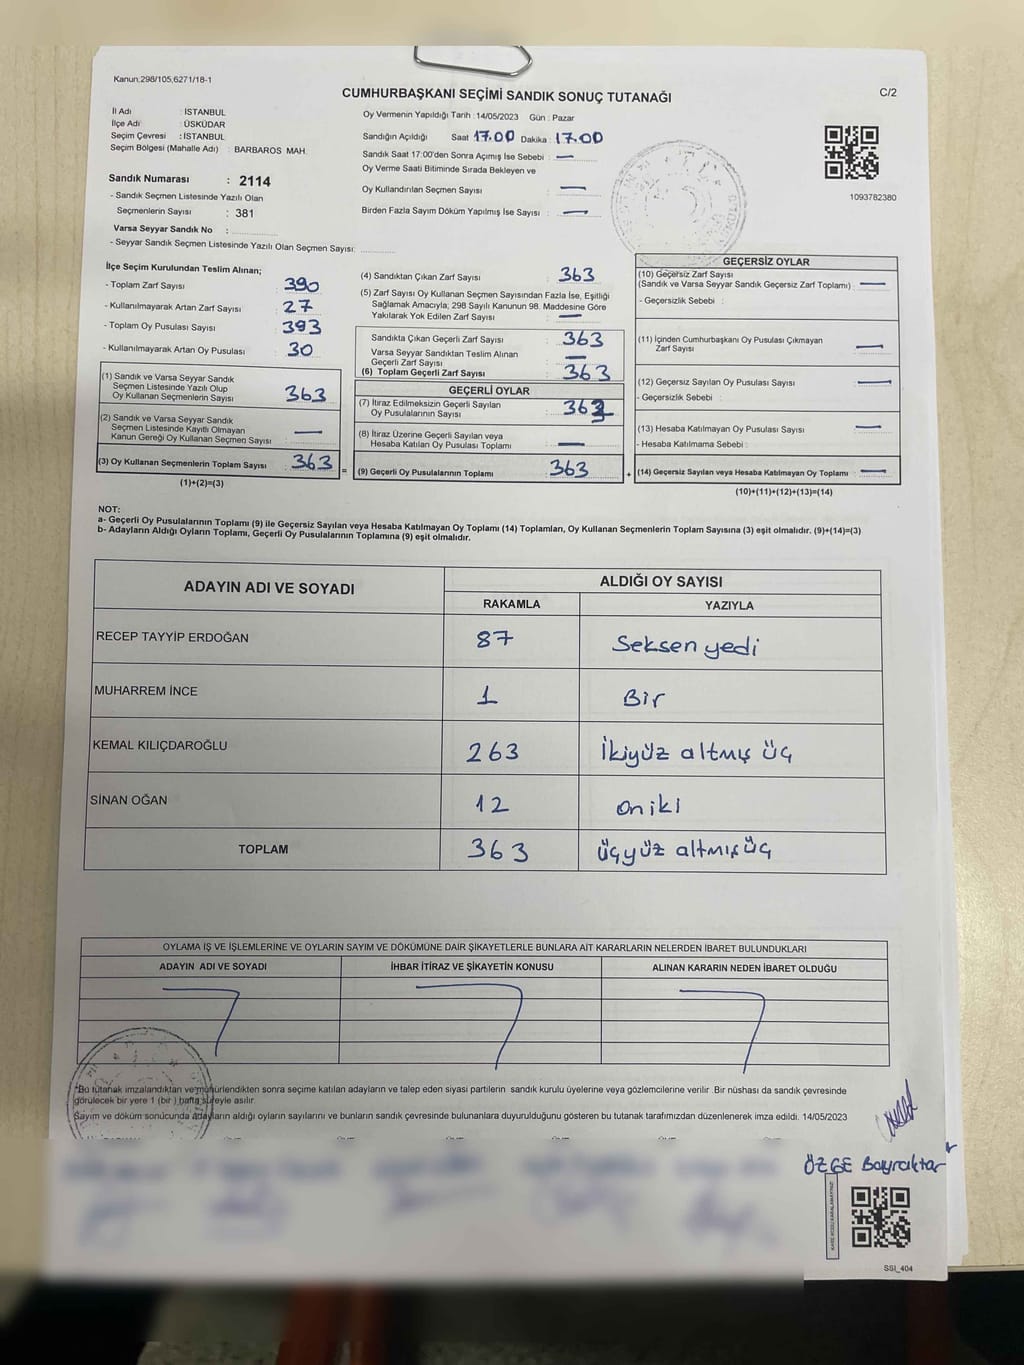 Kanun,298/105,6271/18-1
CUMHURBAŞKANI SEÇİMİ SANDIK SONUÇ TUTANAĞI
C/2
İl Adı : İSTANBUL
İlçe Adı : ÜSKÜDAR
Seçim Çevresi : İSTANBUL
Seçim Bölgesi (Mahalle Adı) : BARBAROS MAH.
Sandık Numarası : 2114
- Sandık Seçmen Listesinde Yazılı Olan
Seçmenlerin Sayısı : 381
Varsa Seyyar Sandık No :
- Seyyar Sandık Seçmen Listesinde Yazılı Olan Seçmen Sayısı:
Oy Vermenin Yapıldığı Tarih : 14/05/2023 Gün : Pazar
Sandığın Açıldığı Saat 17.00 Dakika : 17.00
Sandık Saat 17:00'den Sonra Açmış İse Sebebi : —
Oy Verme Saati Bitiminde Sırada Bekleyen ve
Oy Kullandırılan Seçmen Sayısı : —
Birden Fazla Sayım Döküm Yapılmış İse Sayısı : —
1093782380
İlçe Seçim Kurulundan Teslim Alınan;
- Toplam Zarf Sayısı : 390
- Kullanılmayarak Artan Zarf Sayısı : 27
- Toplam Oy Pusulası Sayısı : 393
- Kullanılmayarak Artan Oy Pusulası : 30
(1) Sandık ve Varsa Seyyar Sandık
Seçmen Listesinde Yazılı Olup
Oy Kullanan Seçmenlerin Sayısı : 363
(2) Sandık ve Varsa Seyyar Sandık
Seçmen Listesinde Kayıtlı Olmayan
Kanun Gereği Oy Kullanan Seçmen Sayısı : —
(3) Oy Kullanan Seçmenlerin Toplam Sayısı : 363
(1)+(2)=(3)
=
(4) Sandıktan Çıkan Zarf Sayısı : 363
(5) Zarf Sayısı Oy Kullanan Seçmen Sayısından Fazla İse, Eşitliği
Sağlamak Amacıyla; 298 Sayılı Kanunun 98. Maddesine Göre
Yakılarak Yok Edilen Zarf Sayısı : —
Sandıkta Çıkan Geçerli Zarf Sayısı : 363
Varsa Seyyar Sandıktan Teslim Alınan
Geçerli Zarf Sayısı : —
(6) Toplam Geçerli Zarf Sayısı : 363
GEÇERLİ OYLAR
(7) İtiraz Edilmeksizin Geçerli Sayılan
Oy Pusulalarının Sayısı : 363
(8) İtiraz Üzerine Geçerli Sayılan veya
Hesaba Katılan Oy Pusulası Toplamı : —
(9) Geçerli Oy Pusulalarının Toplamı : 363
+
GEÇERSİZ OYLAR
(10) Geçersiz Zarf Sayısı
(Sandık ve Varsa Seyyar Sandık Geçersiz Zarf Toplamı) : —
- Geçersizlik Sebebi :
(11) İçinden Cumhurbaşkanı Oy Pusulası Çıkmayan
Zarf Sayısı : —
(12) Geçersiz Sayılan Oy Pusulası Sayısı : —
- Geçersizlik Sebebi :
(13) Hesaba Katılmayan Oy Pusulası Sayısı : —
- Hesaba Katılmama Sebebi :
(14) Geçersiz Sayılan veya Hesaba Katılmayan Oy Toplamı : —
(10)+(11)+(12)+(13)=(14)
NOT:
a- Geçerli Oy Pusulalarının Toplamı (9) ile Geçersiz Sayılan veya Hesaba Katılmayan Oy Toplamı (14) Toplamları, Oy Kullanan Seçmenlerin Toplam Sayısına (3) eşit olmalıdır. (9)+(14)=(3)
b- Adayların Aldığı Oyların Toplamı, Geçerli Oy Pusulalarının Toplamına (9) eşit olmalıdır.
ADAYIN ADI VE SOYADI
ALDIĞI OY SAYISI
RAKAMLA YAZIYLA
RECEP TAYYİP ERDOĞAN 87 Seksen yedi
MUHARREM İNCE 1 Bir
KEMAL KILIÇDAROĞLU 263 İkiyüz altmış üç
SİNAN OĞAN 12 oniki
TOPLAM 363 üçyüz altmış üç
OYLAMA İŞ VE İŞLEMLERİNE VE OYLARIN SAYIM VE DÖKÜMÜNE DAİR ŞİKAYETLERLE BUNLARA AİT KARARLARIN NELERDEN İBARET BULUNDUKLARI
ADAYIN ADI VE SOYADI İHBAR İTİRAZ VE ŞİKAYETİN KONUSU ALINAN KARARIN NEDEN İBARET OLDUĞU
*Bu tutanak imzalandıktan ve mühürlendikten sonra seçime katılan adayların ve talep eden siyasi partilerin sandık kurulu üyelerine veya gözlemcilerine verilir. Bir nüshası da sandık çevresinde
görülecek bir yere 1 (bir) hafta süreyle asılır.
Sayım ve döküm sonucunda adayların aldığı oyların sayılarını ve bunların sandık çevresinde bulunanlara duyurulduğunu gösteren bu tutanak tarafımızdan düzenlenerek imza edildi. 14/05/2023
ÖZGE Bayraktar
SSI_404